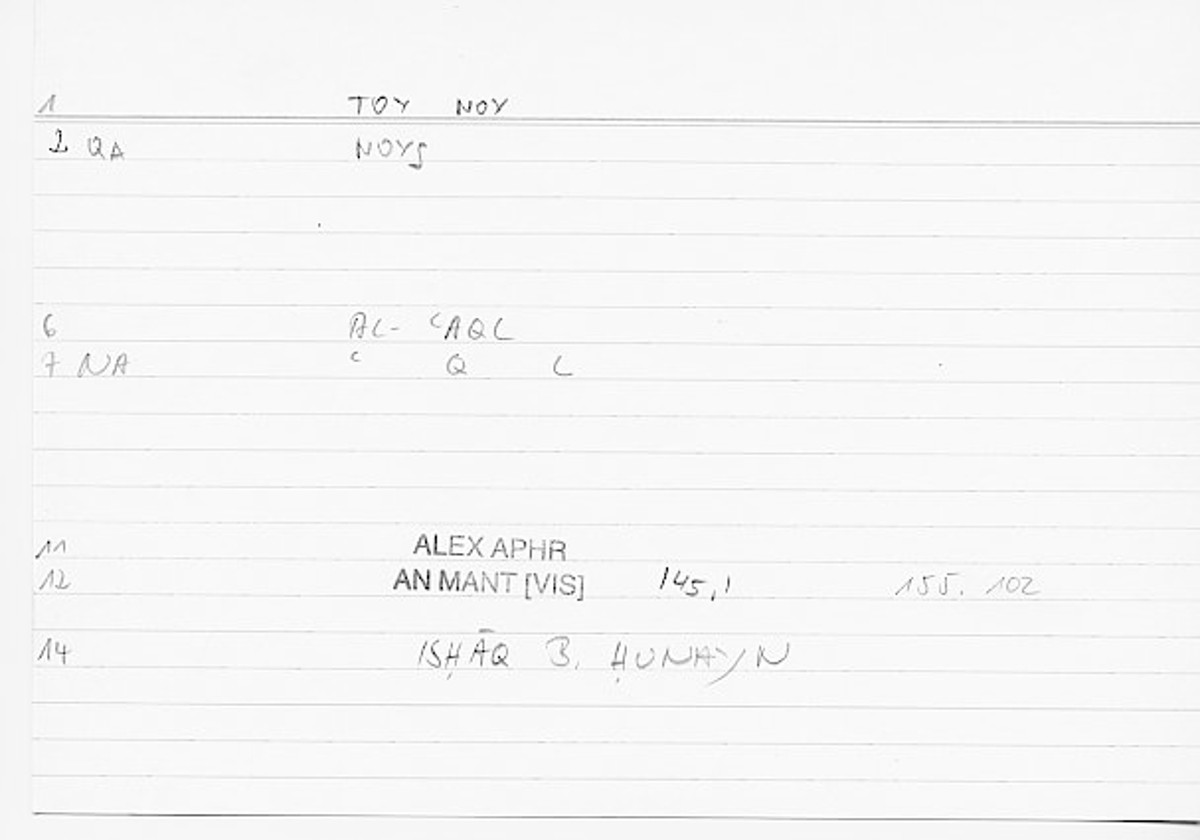 1 ΤΟΥ ΝΟΥ
2 QA ΝΟΥς
6 AL- ʿAQL
7 NA ʿ Q L
11 ALEX APHR
12 AN MANT [VIS] 145,1 155. 102
14 ISḤĀQ B. ḤUNAYN